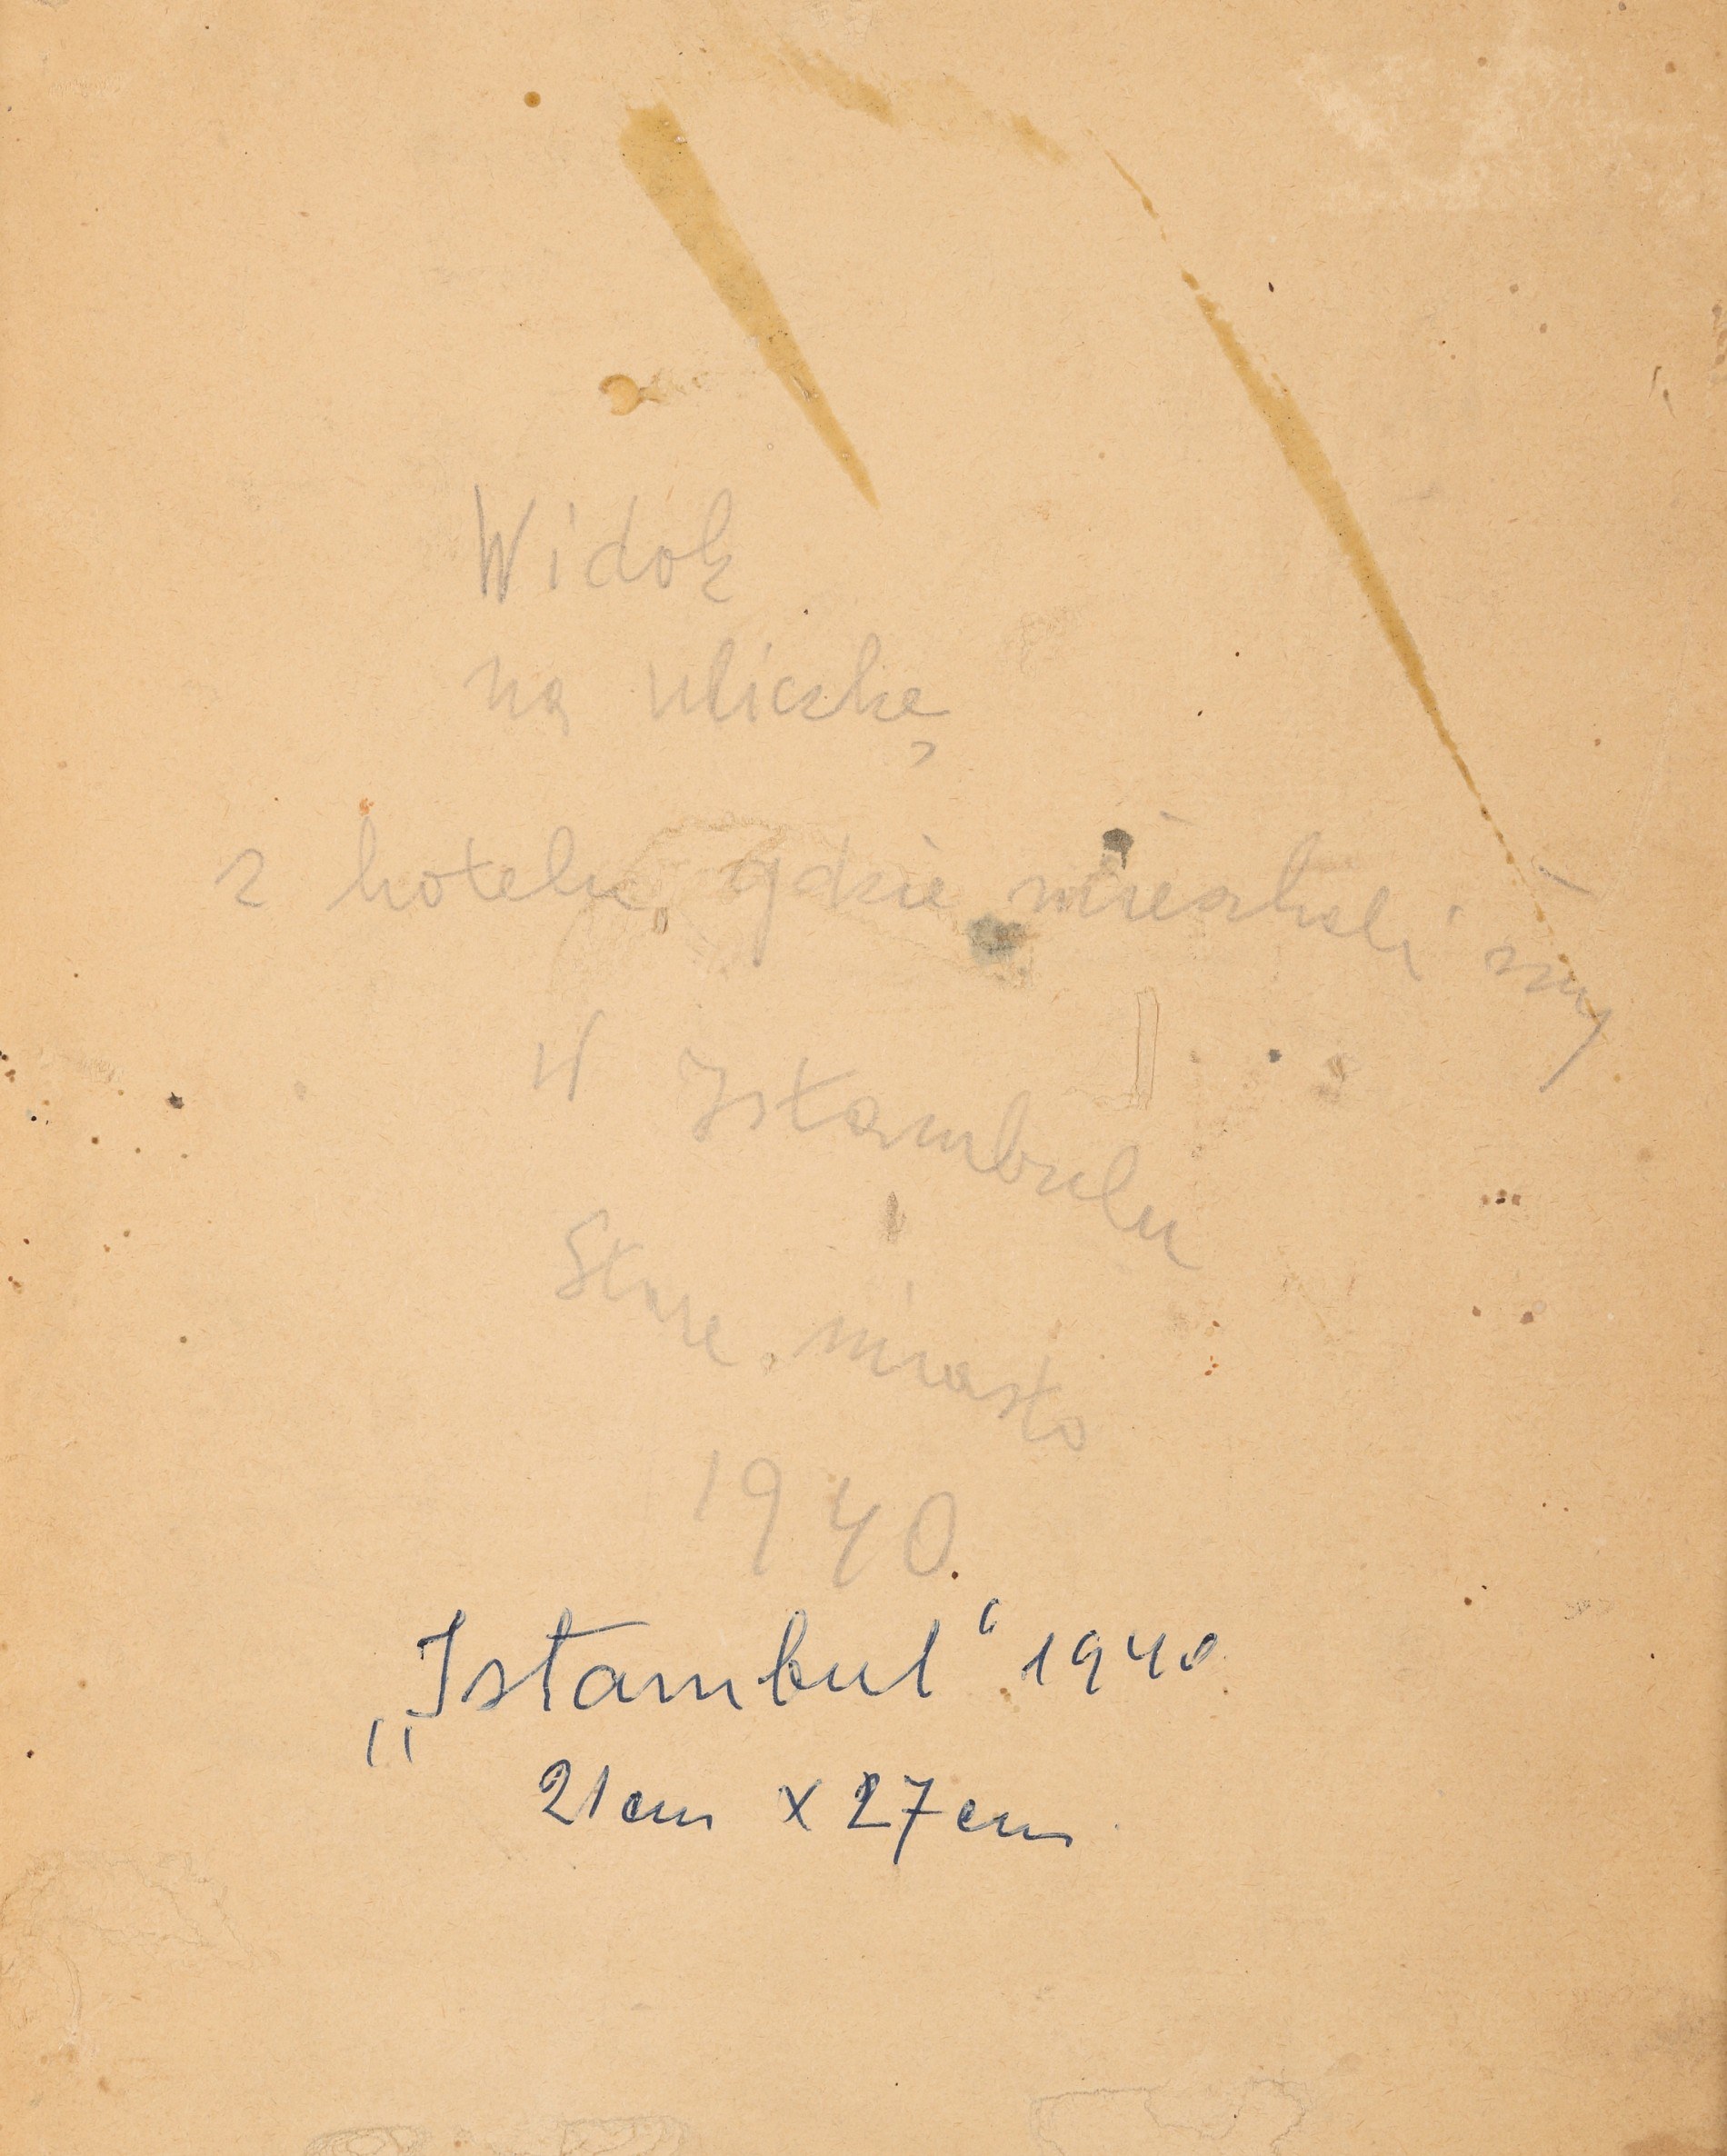 Widok
na uliczkę
z hotelu gdzie mieszkali śmy
W Istambulu
Stare miasto
1940
„Istambul“ 1940
21cm x 27cm